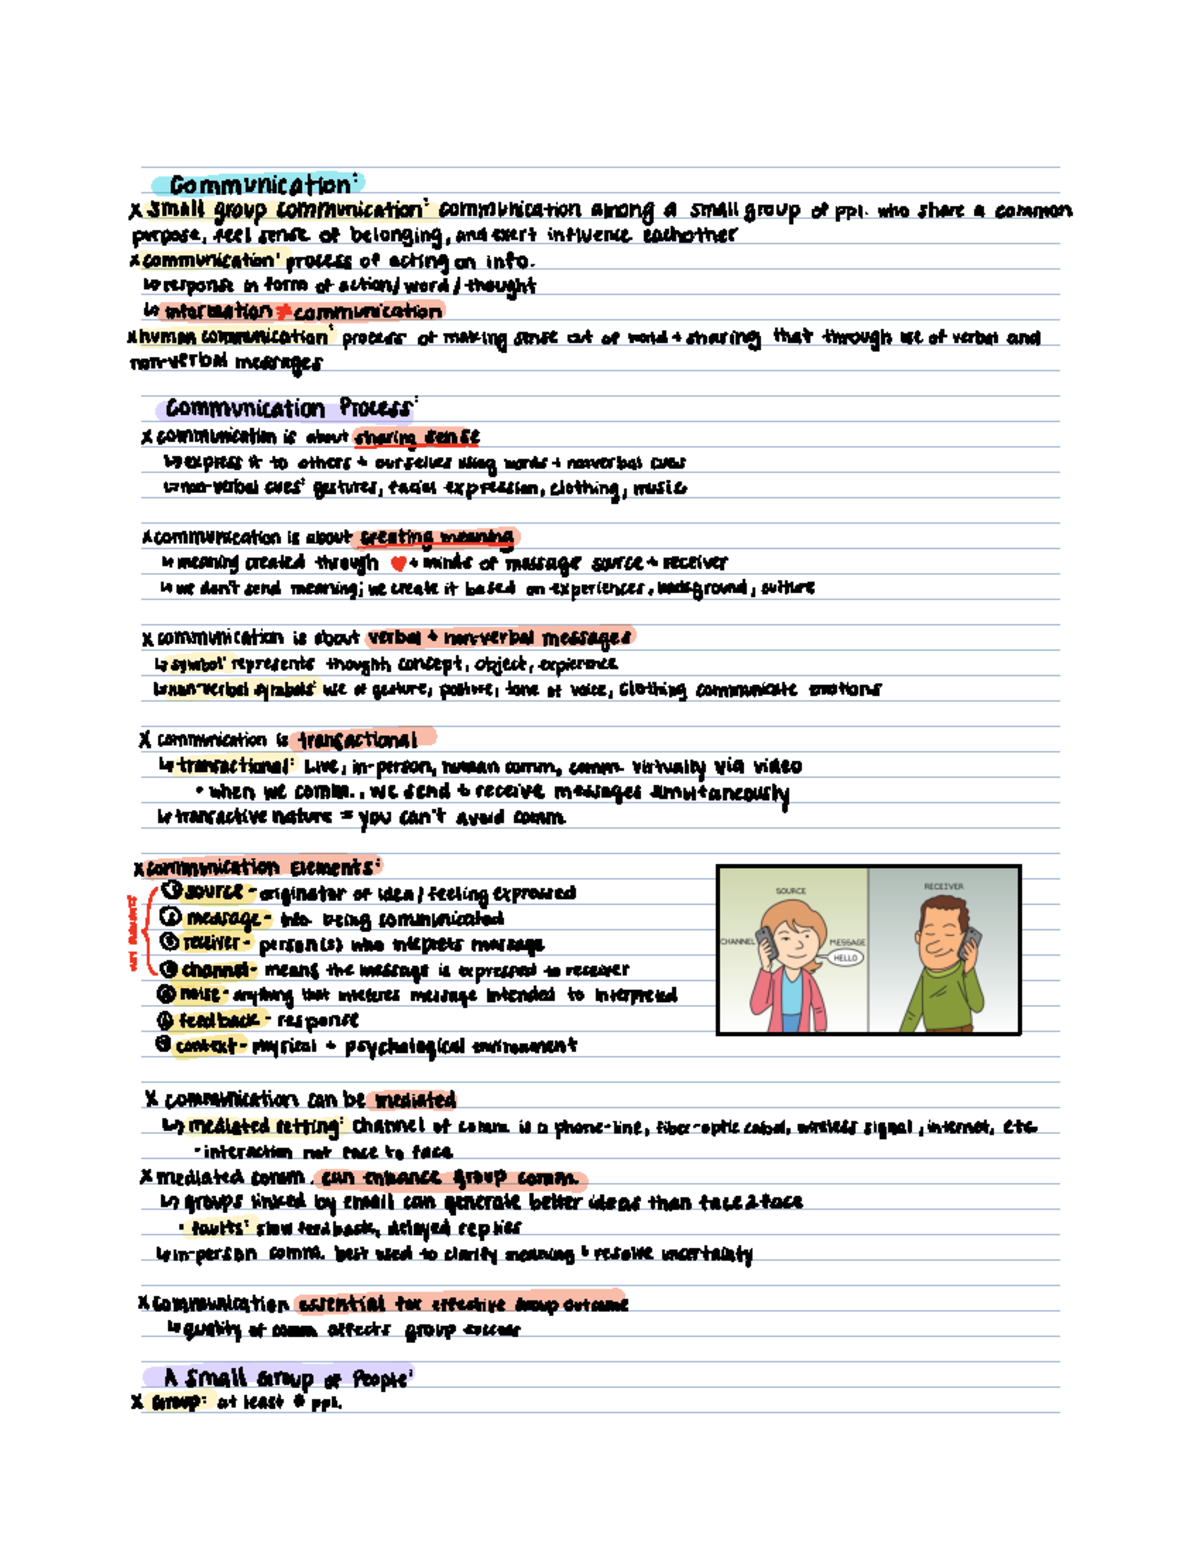 Communication:
x small group communication: communication among a small group of ppl. who share a common
purpose, feel sense of belonging, and exert influence eachother
x communication: process of acting on info.
↳ response in form of action/word/thought
↳ information ≠ communication
x human communication: process of making sense out of world + sharing that through use of verbal and
non-verbal messages
Communication Process:
x communication is about sharing sense
↳ express it to others + ourselves using words + nonverbal cues
↳ non-verbal cues: gestures, facial expression, clothing, music
x communication is about creating meaning
↳ meaning created through ♥ + minds of message source + receiver
↳ we don't send meaning; we create it based on experiences, background, culture
x communication is about verbal + non-verbal messages
↳ symbol: represents thought concept, object, expierence
↳ non-verbal symbols: use of gesture, posture, tone of voice, clothing communicate emotions
x communication is transactional
↳ transactional: Live, in-person, human comm, comm. virtually via video
• when we comm., we send + receive messages simultaneously
↳ transactive nature = you can't avoid comm.
x communication Elements:
① source - originator of idea/feeling expressed
② message - info being communicated
③ receiver - person(s) who interprets message
④ channel - means the message is expressed to receiver
⑤ noise - anything that interferes message intended to interpreted
⑥ feedback - response
⑦ context - physical + psychological environment
SOURCE
RECEIVER
CHANNEL
MESSAGE
HELLO
x communication can be mediated
↳ mediated setting: channel of comm. is a phone-line, fiber-optic cabel, wireless signal, internet, etc.
• interaction not face to face
x mediated comm. can enhance group comm.
↳ groups linked by email can generate better ideas than face2face
• faults: slow feedback, delayed replies
↳ in-person comm. best used to clarify meaning + resolve uncertainty
x communication essential for effective group outcome
↳ quality of comm. affects group success
A Small Group of People:
x Group: at least ppl.